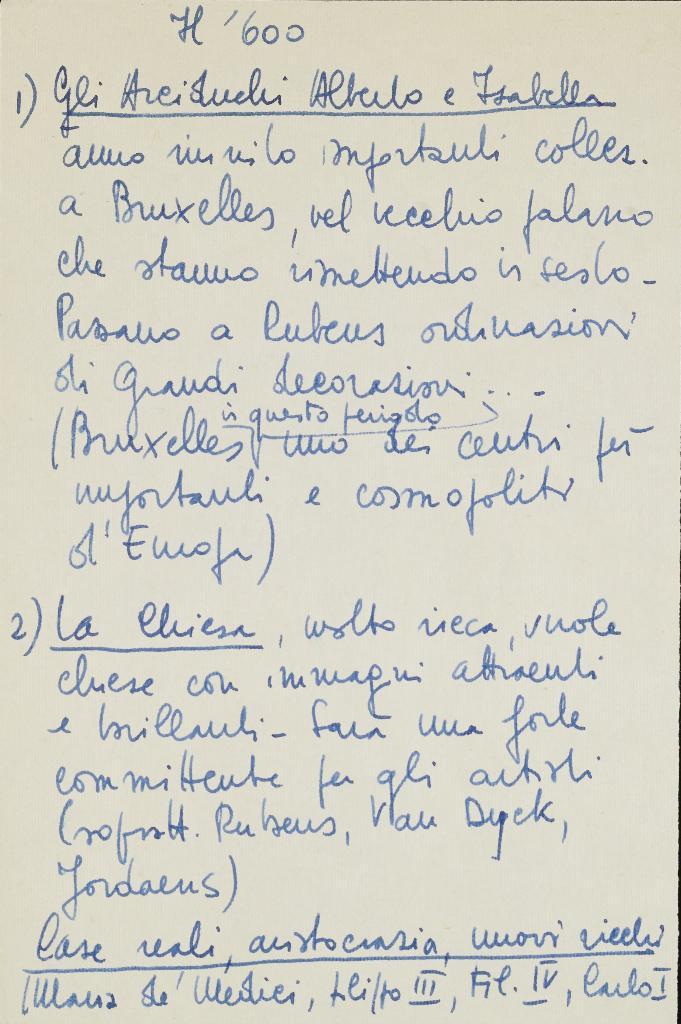 Il '600
1) Gli Arciduchi Alberto e Isabella
anno riunito importanti collez.
a Bruxelles, nel vecchio palazzo
che stanno rimettendo in sesto -
Passano a Rubens ordinazioni
di Grandi decorazioni... -
in questo periodo
(Bruxelles uno dei centri più
importanti e cosmopoliti
d'Europa)
2) La Chiesa, molto ricca, vuole
chiese con immagini attraenti
e brillanti - Sarà una forte
committente per gli artisti
(sopratt. Rubens, Van Dyck,
Jordaens)
Case reali, aristocrazia, nuovi ricchi
(Maria de' Medici, Filippo III, Fil. IV, Carlo I